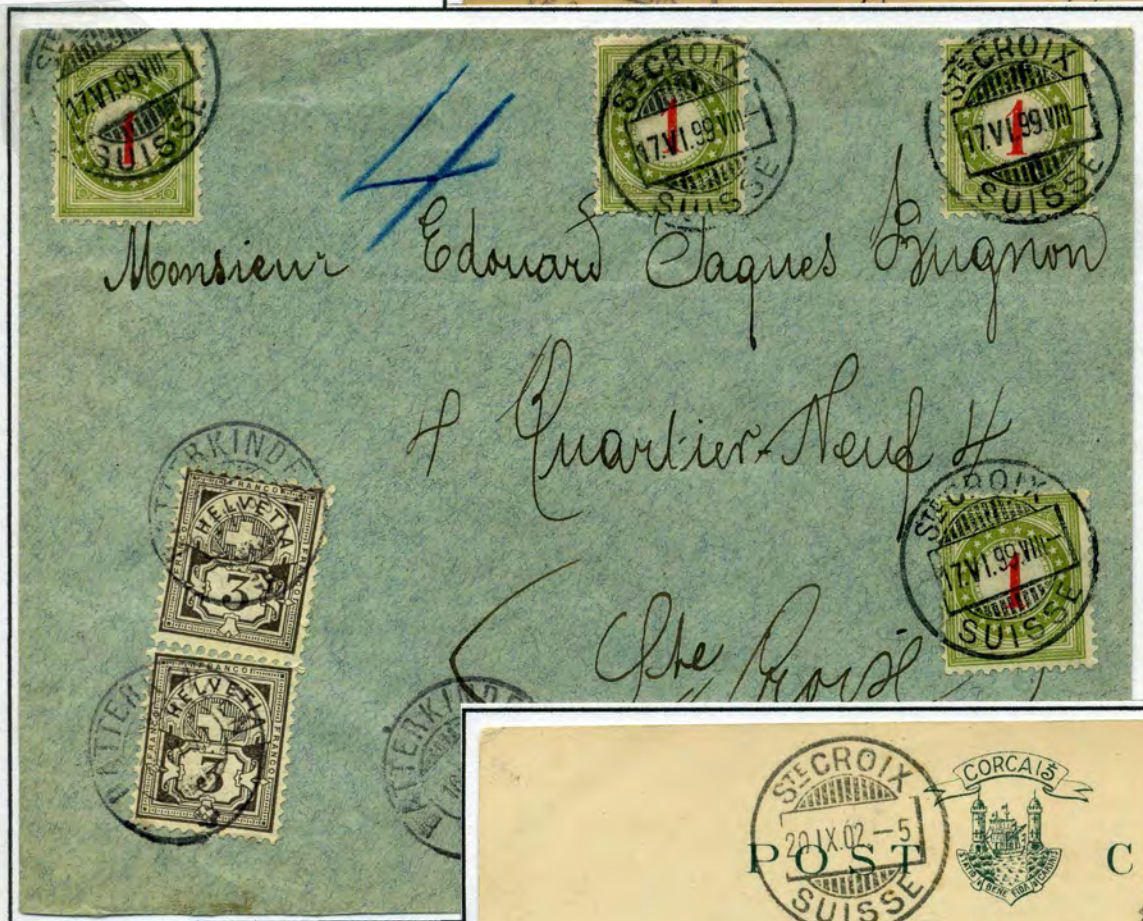 STE CROIX 17.VI.99.VIII- SUISSE 1
STE CROIX 17.VI.99.VIII- SUISSE 1
STE CROIX 17.VI.99.VIII- SUISSE 1
4
Monsieur Edouard Jaques Bugnon
4 Quartier-Neuf 4
STE CROIX 17.VI.99.VIII- SUISSE 1
Ste Croix
FRANCO HELVETIA 3 FRANCO
FRANCO HELVETIA 3 FRANCO
STE CROIX 20.IX.02-5 SUISSE
CORCAIŠ
STATIO BENE FIDA CARINIS
POST C